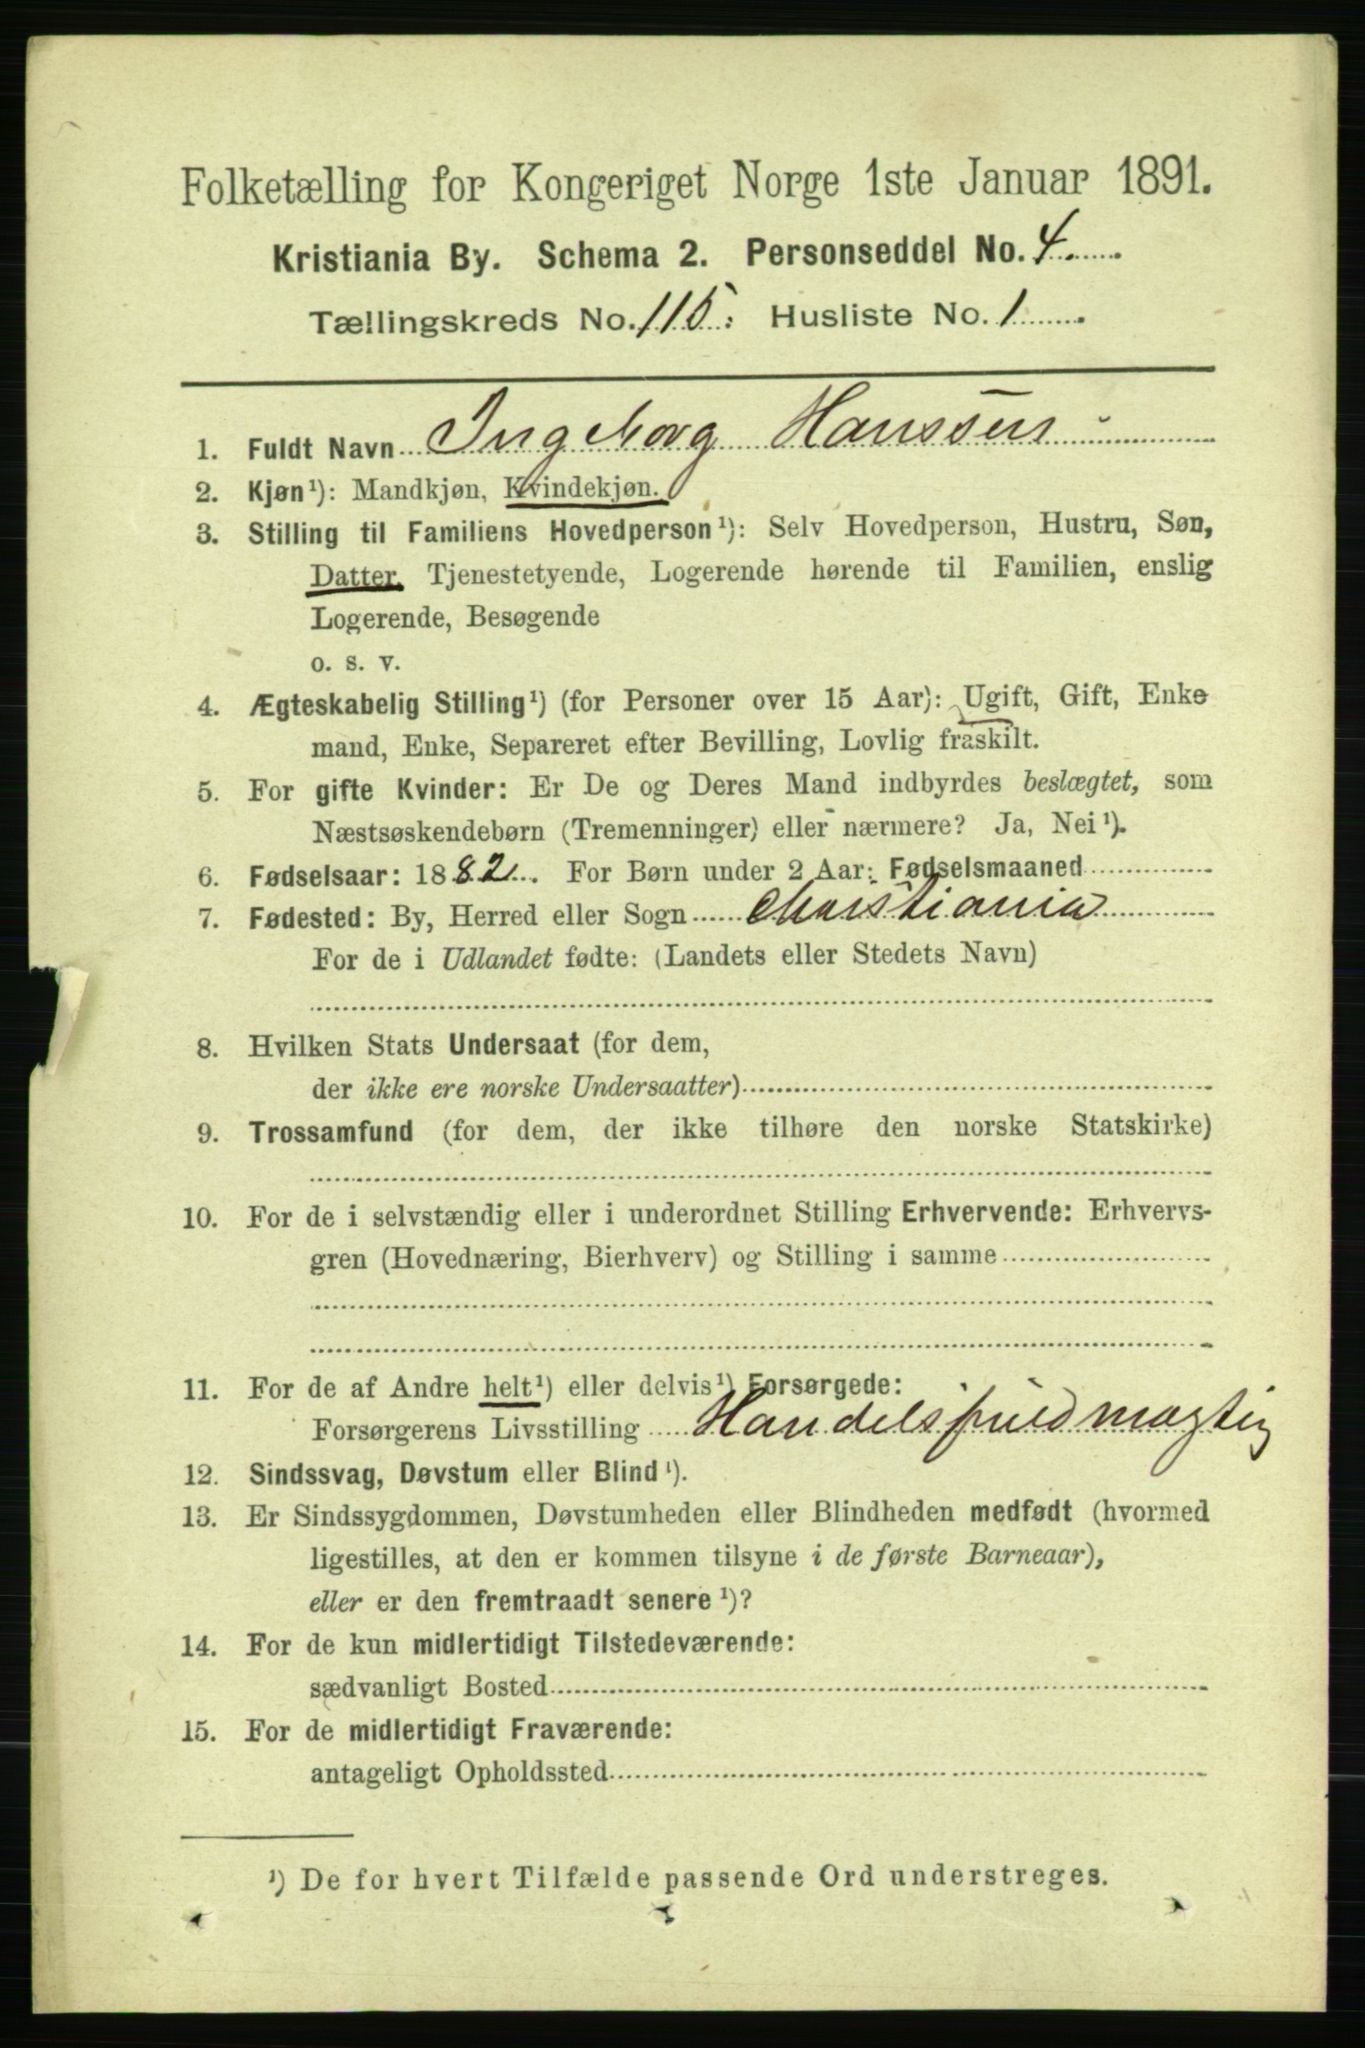 Folketælling for Kongeriget Norge 1ste Januar 1891.
Kristiania By. Schema 2. Personseddel No. 4
Tællingskreds No. 115. Husliste No. 1
1. Fuldt Navn Ingeborg Hanssen
2. Kjøn¹): Mandkjøn, Kvindekjøn.
3. Stilling til Familiens Hovedperson¹): Selv Hovedperson, Hustru, Søn,
Datter, Tjenestetyende, Logerende hørende til Familien, enslig
Logerende, Besøgende
o. s. v.
4. Ægteskabelig Stilling¹) (for Personer over 15 Aar): Ugift, Gift, Enke
mand, Enke, Separeret efter Bevilling, Lovlig fraskilt.
5. For gifte Kvinder: Er De og Deres Mand indbyrdes beslægtet, som
Næstsøskendebørn (Tremenninger) eller nærmere? Ja, Nei¹).
6. Fødselsaar: 1882. For Børn under 2 Aar: Fødselsmaaned
7. Fødested: By, Herred eller Sogn Christiania
For de i Udlandet fødte: (Landets eller Stedets Navn)
8. Hvilken Stats Undersaat (for dem,
der ikke ere norske Undersaatter)
9. Trossamfund (for dem, der ikke tilhøre den norske Statskirke)
10. For de i selvstændig eller i underordnet Stilling Erhvervende: Erhvervs-
gren (Hovednæring, Bierhverv) og Stilling i samme
11. For de af Andre helt¹) eller delvis¹) Forsørgede:
Forsørgerens Livsstilling Handelsfuldmægtig
12. Sindssvag, Døvstum eller Blind¹).
13. Er Sindssygdommen, Døvstumheden eller Blindheden medfødt (hvormed
ligestilles, at den er kommen tilsyne i de første Barneaar),
eller er den fremtraadt senere¹)?
14. For de kun midlertidigt Tilstedeværende:
sædvanligt Bosted
15. For de midlertidigt Fraværende:
antageligt Opholdssted
¹) De for hvert Tilfælde passende Ord understreges.